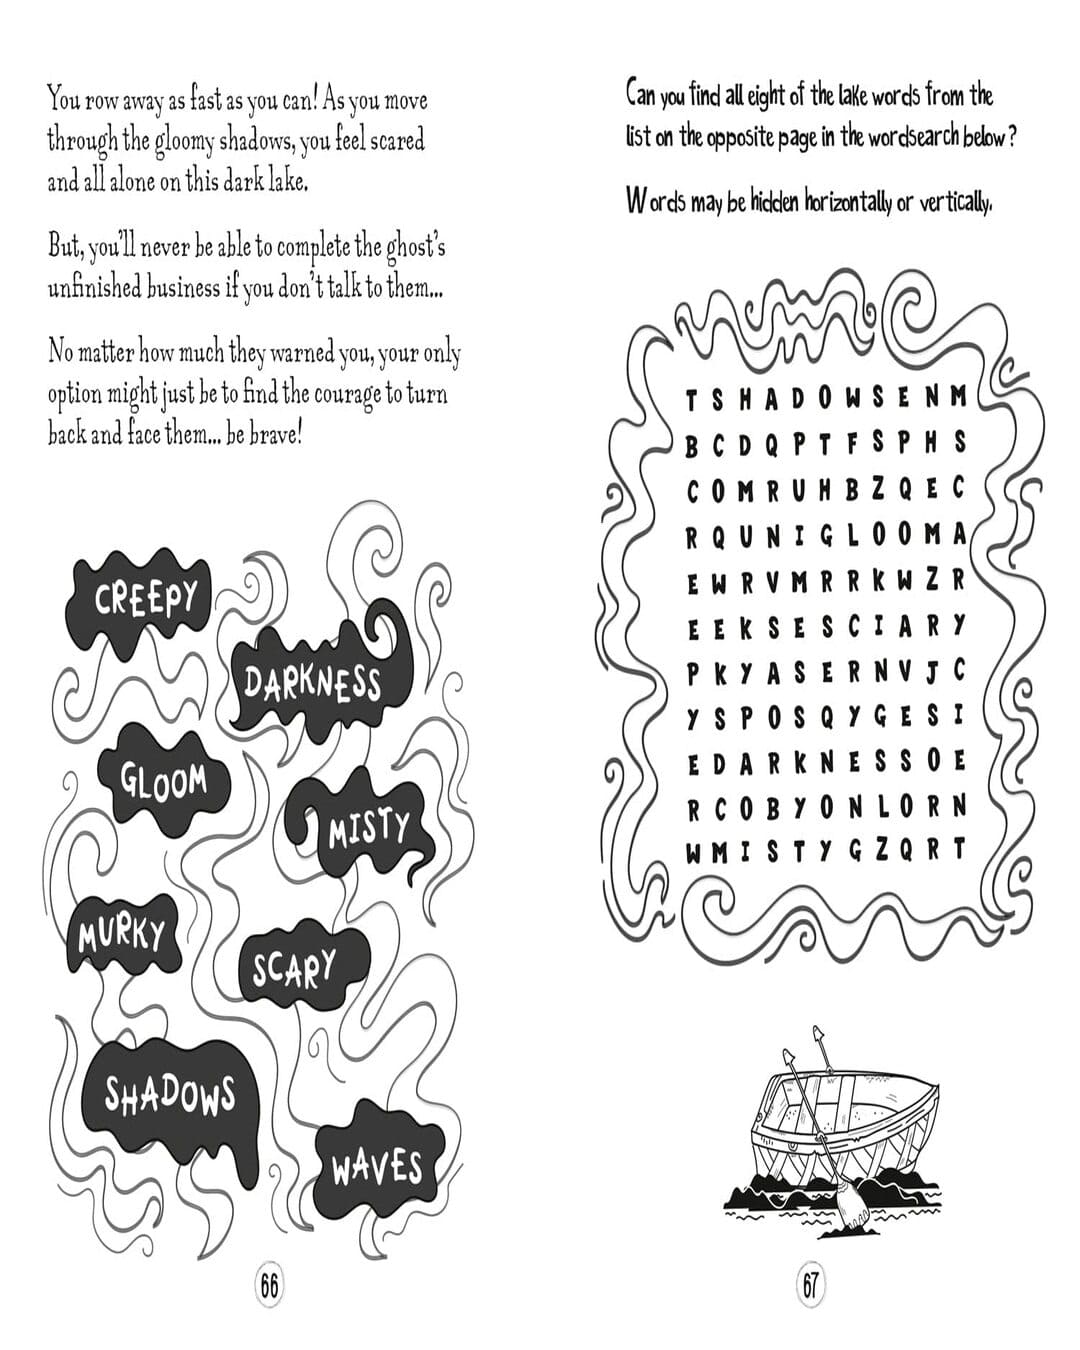 You row away as fast as you can! As you move
through the gloomy shadows, you feel scared
and all alone on this dark lake.
But, you'll never be able to complete the ghost's
unfinished business if you don't talk to them...
No matter how much they warned you, your only
option might just be to find the courage to turn
back and face them... be brave!
CREEPY
DARKNESS
GLOOM
MISTY
MURKY
SCARY
SHADOWS
WAVES
66
Can you find all eight of the lake words from the
list on the opposite page in the wordsearch below?
Words may be hidden horizontally or vertically.
T S H A D O W S E N M
B C D Q P T F S P H S
C O M R U H B Z Q E C
R Q U N I G L O O M A
E W R V M R R K W Z R
E E K S E S C I A R Y
P K Y A S E R N V J C
Y S P O S Q Y G E S I
E D A R K N E S S O E
R C O B Y O N L O R N
W M I S T Y G Z Q R T
67